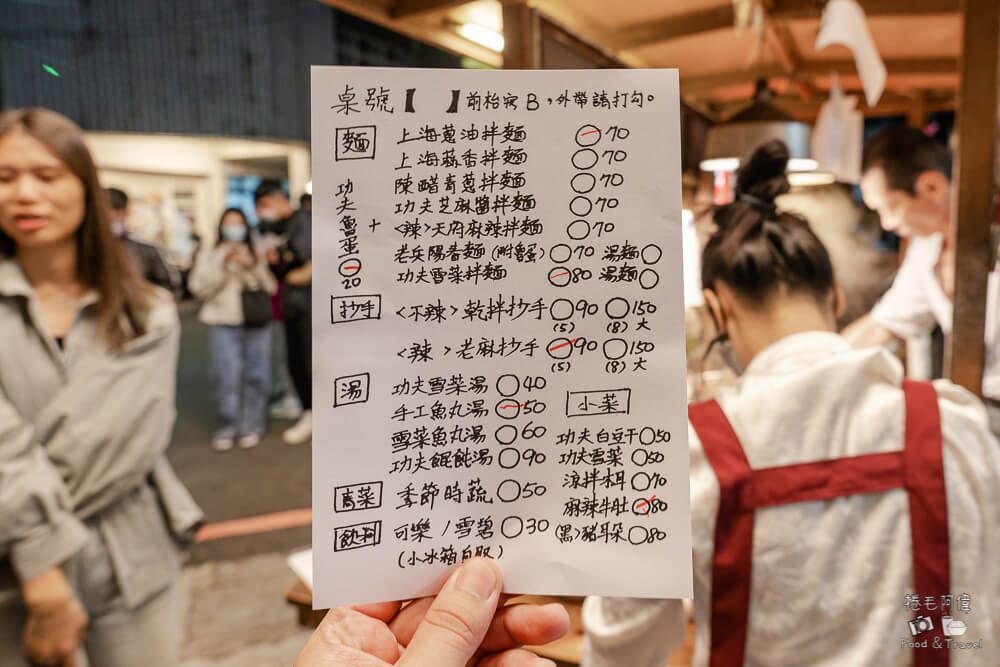 桌號【 】前枱突B,外帶請打勾。
麵
上海蔥油拌麵 ○70
上海蒜香拌麵 ○70
陳醋青蔥拌麵 ○70
功夫芝麻醬拌麵 ○70
<辣>天府麻辣拌麵 ○70
老兵陽春麵(附魯蛋) ○70 湯麵○
功夫雪菜拌麵 ○80 湯麵○
功夫魯蛋 ○ 20
+
抄手
<不辣>乾拌抄手 ○90 ○150
(5) (8)大
<辣>老麻抄手 ○90 ○150
(5) (8)大
湯
功夫雪菜湯 ○40
手工魚丸湯 ○50
雪菜魚丸湯 ○60
功夫餛飩湯 ○90
小菜
功夫白豆干○50
功夫雪菜 ○50
涼拌木耳 ○70
麻辣牛肚○80
(黑)豬耳朵○80
青菜
季節時蔬○50
飲料
可樂/雪碧 ○30
(小冰箱自取)
捲毛阿偉
Food & Travel